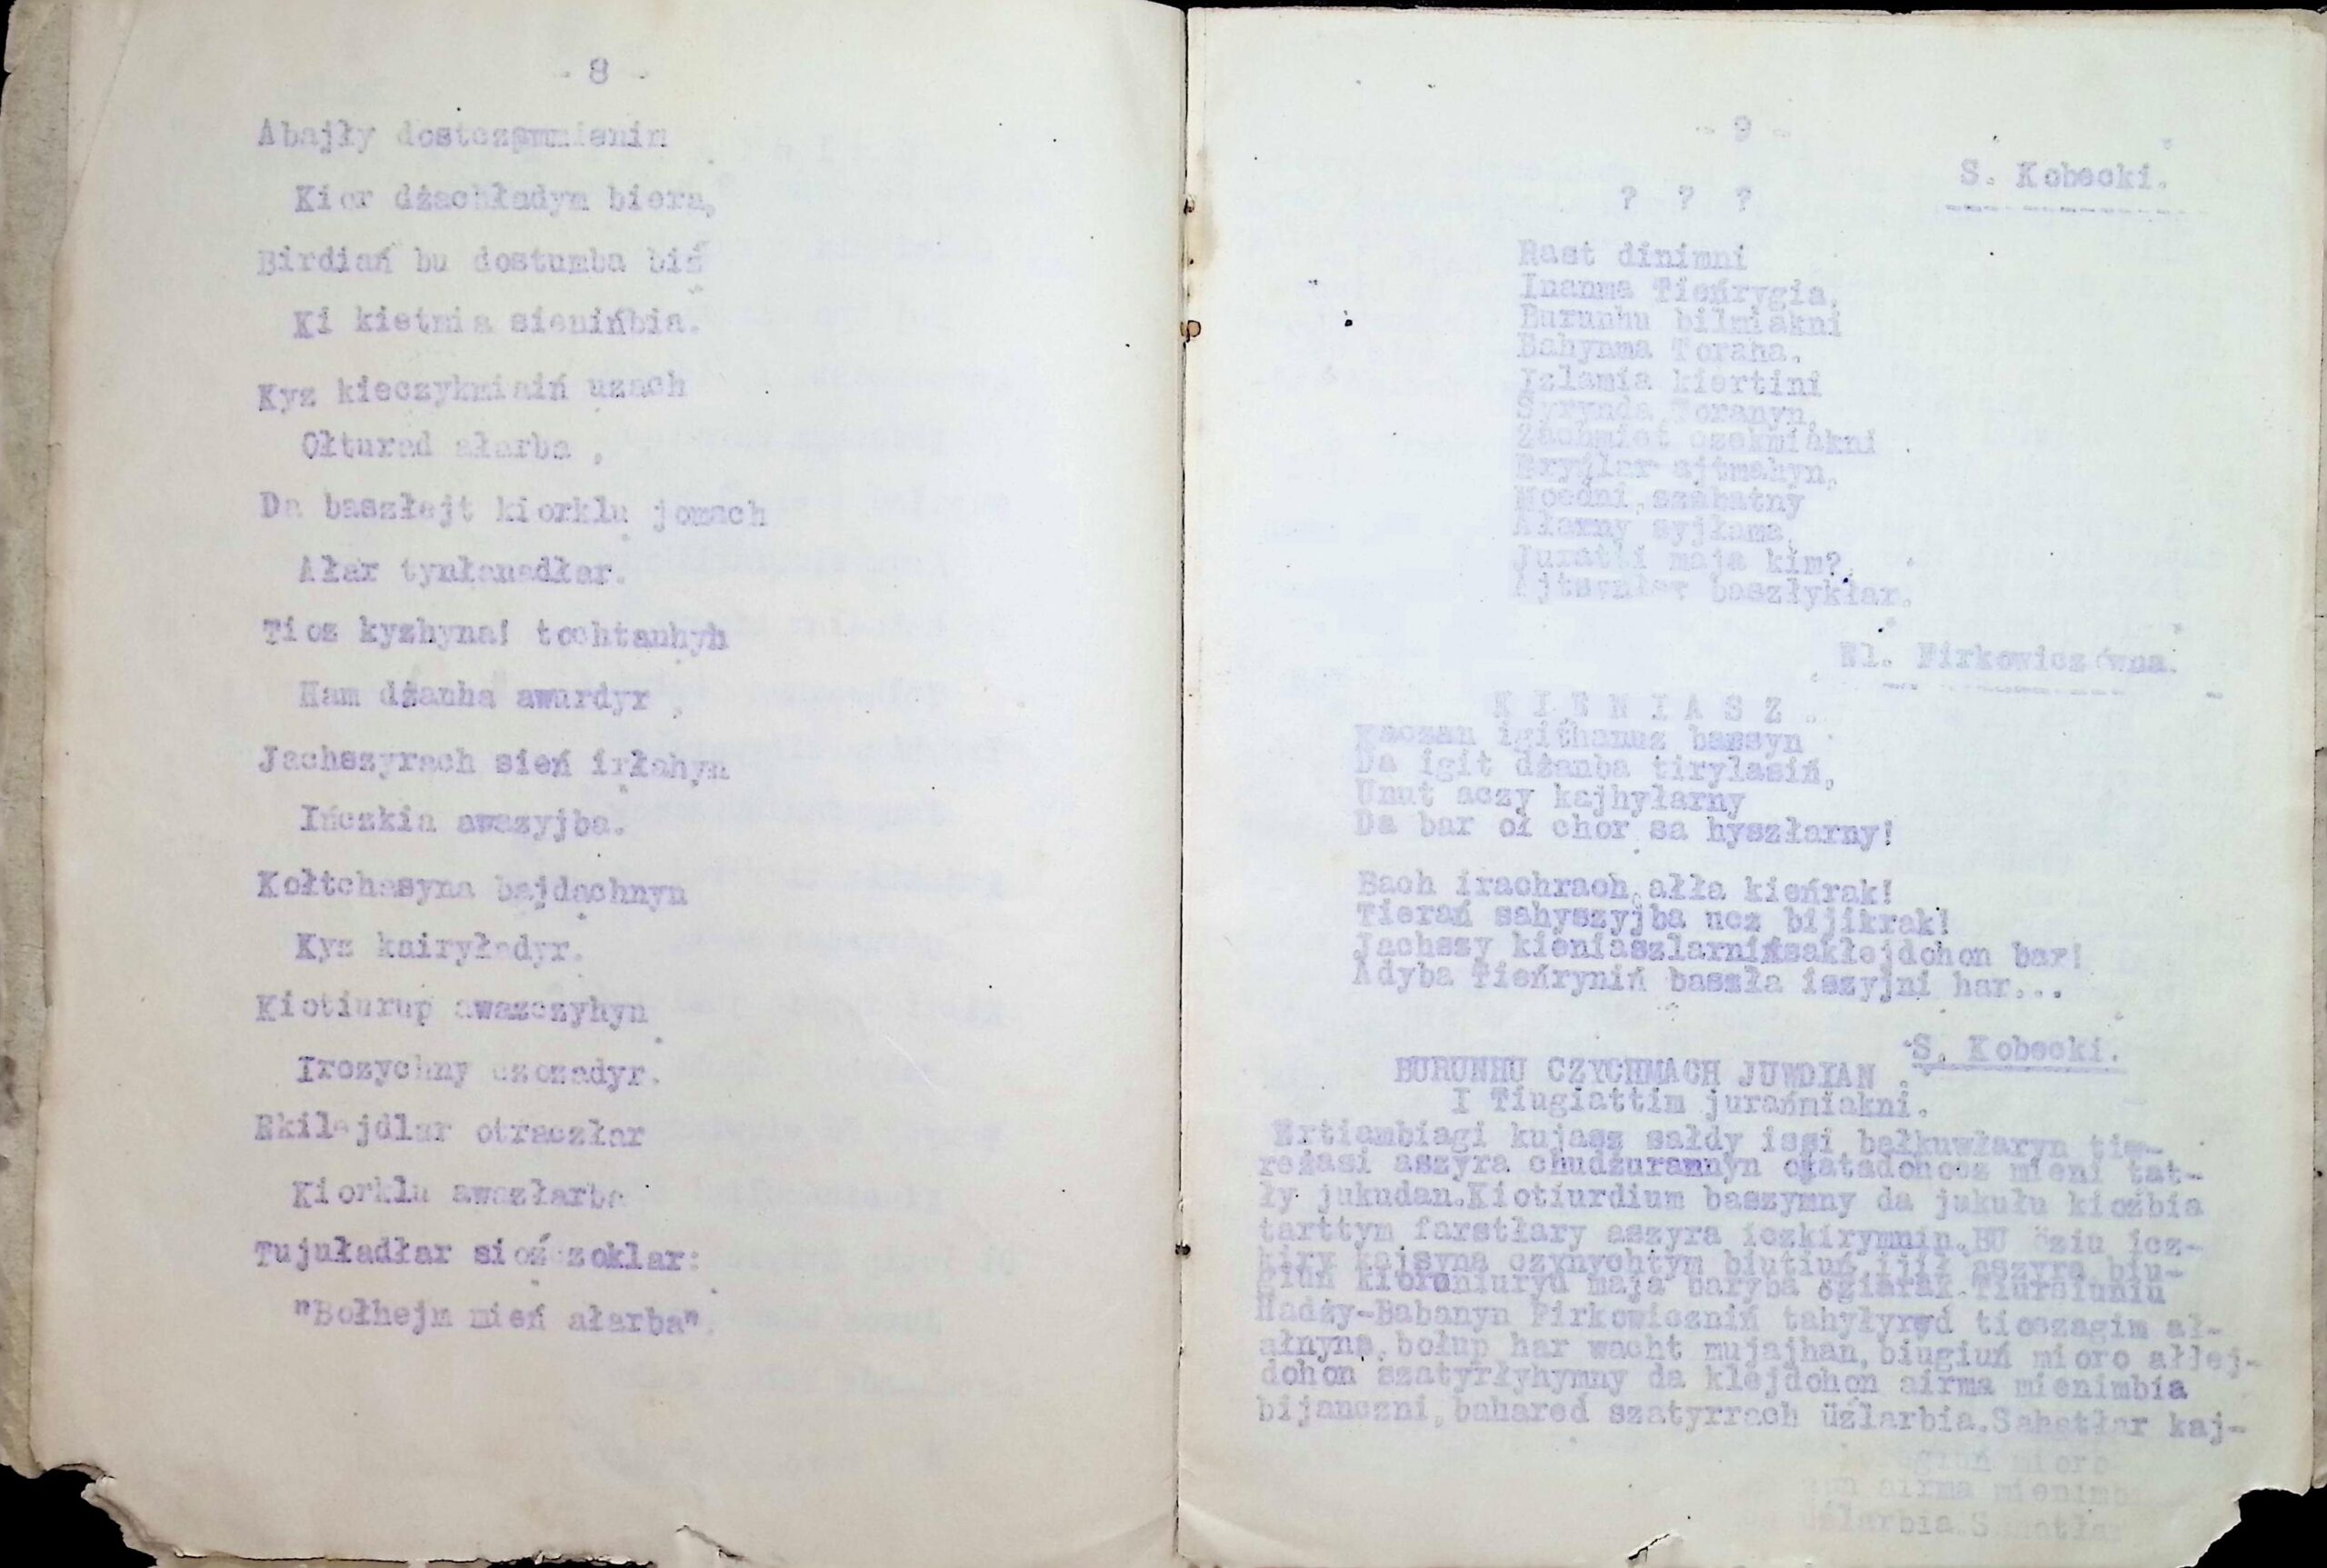 - 8 -
Abajły dostczammienim
Kior dżachładym biera,
Birdiań bu dostumba biź
Ki kietmia sienińbia.
Kyz kieczykmiaiń uzach
Ołturad ałarba ,
Da baszłejt kiorklu jomach
Ałar tynłanadłar.
Tioz kyzhyna! tochtanhyh
Ham dżanha awurdyr ,
Jachszyrach sień irłahyn
Ińczkia awazyjba.
Kołtchasyna bajdachnyn
Kyz kairyładyr.
Kiotiurup awazczyhyn
Irczychny czozadyr.
Ekilejdlar otraczłar
Kiorklu awazłarba
Tujuładłar sioź czoklar:
"Bołhejm mień ałarba".
- 9 -
S. Kobecki.
? ? ?
Rast dinimni
Inanma Tieńrygia,
Burunhu bilmiakni
Bahynma Toraha.
Izlamia kiertini
Syrynda Toranyn,
Zachmiet czekmiakni
Eryńlar ajtmahyn,
Moedni, szabatny
Ałarny syjłama,
Juratti maja kim?
Ajtsynłar baszłykłar.
El. Firkowiczówna.
K I E N I A S Z .
Kaczan igithanuz bassyn
Da igit dżanba tirylasiń,
Unut aczy kajhyłarny
Da bar oł chor sa hyszłarny!
Bach irachrach, ałła kieńrak!
Tierań sahyszyjba ucz bijikrak!
Jachszy kieniaszlarniń sakłejdohon bar!
Adyba Tieńryniń baszła iszyjni har...
S. Kobecki.
BURUNHU CZYCHMACH JUWDIAN .
I Tiugiattim jurańmiakni.
Ertiambiagi kujasz sałdy issi bałkuwłaryn tie-
reżasi aszyra chudżuramnyn ojatadohocz mieni tat-
ły jukudan.Kiotiurdium baszymny da jukułu kioźbia
tarttym farstłary aszyra iczkirymnin.BU öziu icz-
kiry kajsyna czynychtym biutiuń ijił aszyra biu-
giuń kioroniuryd maja baryba öziarak.Tiursiuniu
Hadży-Babanyn Firkowiczniń tahyłyryd tioszagim ał-
ałnyna, bołup har wacht mujajhan, biugiuń mioro ałłej-
dohon szatyrłyhymny da klejdohon airma mienimbia
bijanczni, bahared szatyrrach üźlarbia.Sahatłar kaj-